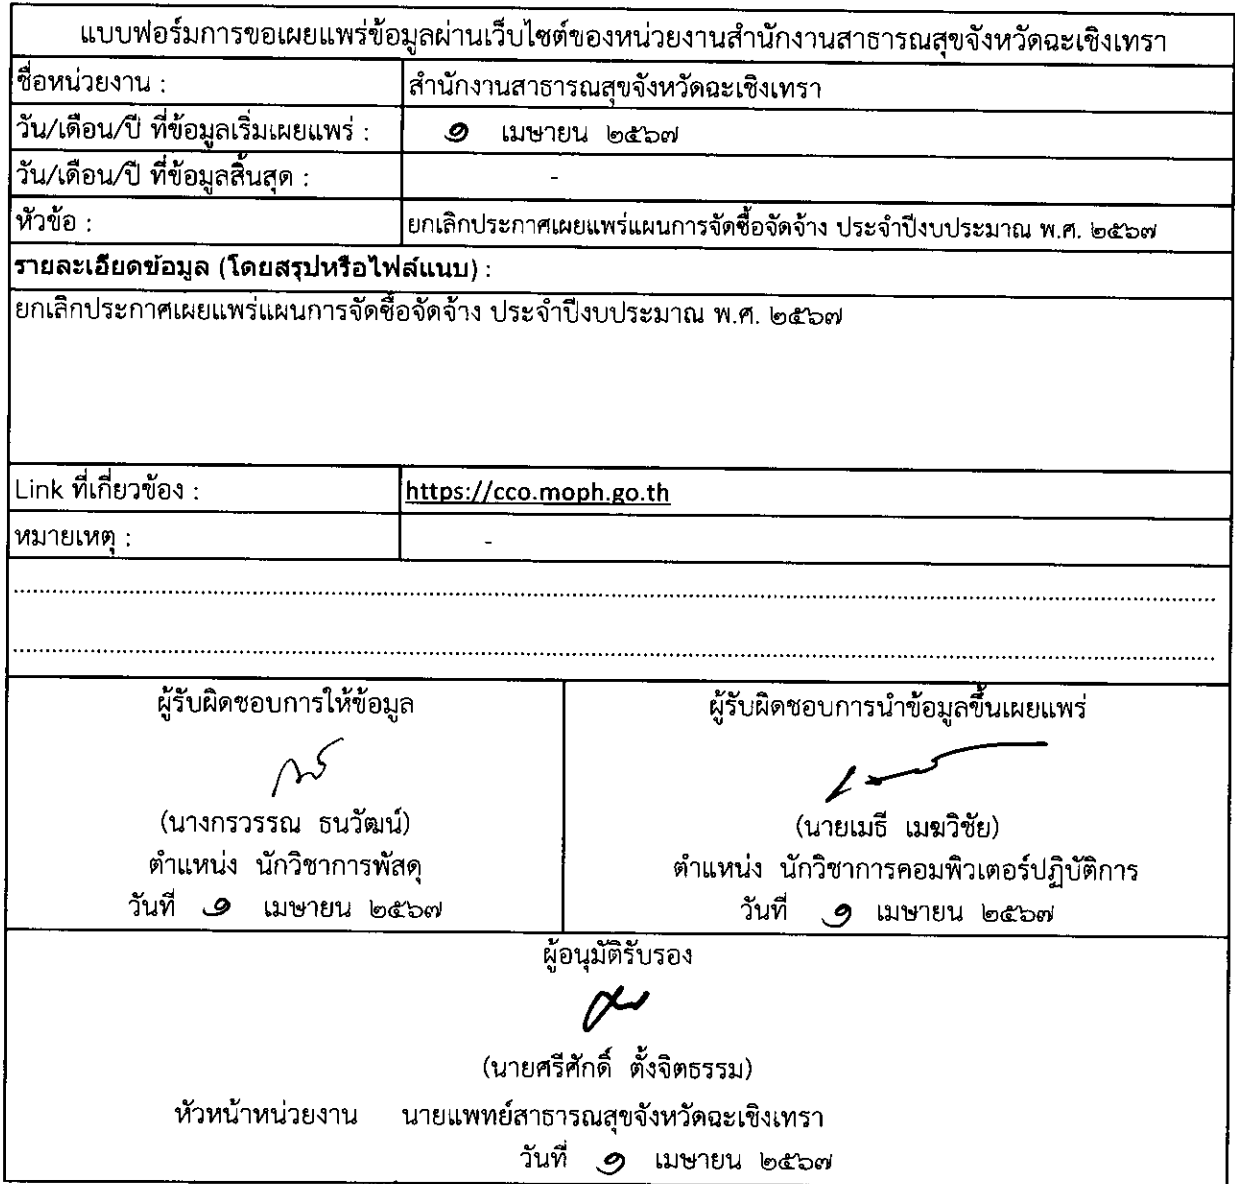 แบบฟอร์มการขอเผยแพร่ข้อมูลผ่านเว็บไซต์ของหน่วยงานสำนักงานสาธารณสุขจังหวัดฉะเชิงเทรา
ชื่อหน่วยงาน : สำนักงานสาธารณสุขจังหวัดฉะเชิงเทรา
วัน/เดือน/ปี ที่ข้อมูลเริ่มเผยแพร่ : ๑ เมษายน ๒๕๖๗
วัน/เดือน/ปี ที่ข้อมูลสิ้นสุด : -
หัวข้อ : ยกเลิกประกาศเผยแพร่แผนการจัดซื้อจัดจ้าง ประจำปีงบประมาณ พ.ศ. ๒๕๖๗
รายละเอียดข้อมูล (โดยสรุปหรือไฟล์แนบ) :
ยกเลิกประกาศเผยแพร่แผนการจัดซื้อจัดจ้าง ประจำปีงบประมาณ พ.ศ. ๒๕๖๗
Link ที่เกี่ยวข้อง : https://cco.moph.go.th
หมายเหตุ : -
ผู้รับผิดชอบการให้ข้อมูล
(นางกรวรรณ ธนวัฒน์)
ตำแหน่ง นักวิชาการพัสดุ
วันที่ ๑ เมษายน ๒๕๖๗
ผู้รับผิดชอบการนำข้อมูลขึ้นเผยแพร่
(นายเมธี เมฆวิชัย)
ตำแหน่ง นักวิชาการคอมพิวเตอร์ปฏิบัติการ
วันที่ ๑ เมษายน ๒๕๖๗
ผู้อนุมัติรับรอง
(นายศรีศักดิ์ ตั้งจิตธรรม)
หัวหน้าหน่วยงาน นายแพทย์สาธารณสุขจังหวัดฉะเชิงเทรา
วันที่ ๑ เมษายน ๒๕๖๗